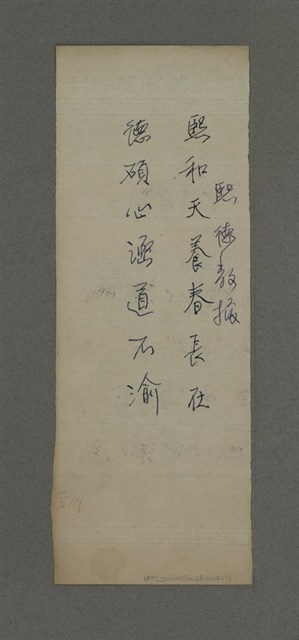 熙德教授
熙和天養春長在
德碩心涵道不渝